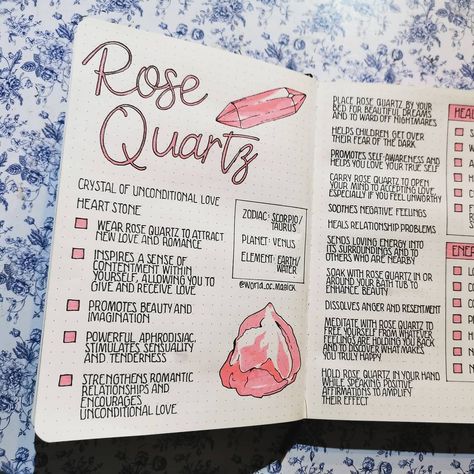 Rose
Quartz
CRYSTAL OF UNCONDITIONAL LOVE
HEART STONE
WEAR ROSE QUARTZ TO ATTRACT
NEW LOVE AND ROMANCE
INSPIRES A SENSE OF
CONTENTMENT WITHIN
YOURSELF, ALLOWING YOU TO
GIVE AND RECEIVE LOVE
PROMOTES BEAUTY AND
IMAGINATION
POWERFUL APHRODISIAC,
STIMULATES SENSUALITY
AND TENDERNESS
STRENGTHENS ROMANTIC
RELATIONSHIPS AND
ENCOURAGES
UNCONDITIONAL LOVE
ZODIAC: SCORPIO/
TAURUS
PLANET: VENUS
ELEMENT: EARTH/
WATER
@WORLD.OF.MAGICK
PLACE ROSE QUARTZ BY YOUR
BED FOR BEAUTIFUL DREAMS
AND TO WARD OFF NIGHTMARES
HELPS CHILDREN GET OVER
THEIR FEAR OF THE DARK
PROMOTES SELF-AWARENESS AND
HELPS YOU LOVE YOUR TRUE SELF
CARRY ROSE QUARTZ TO OPEN
YOUR MIND TO ACCEPTING LOVE,
ESPECIALLY IF YOU FEEL UNWORTHY
SOOTHES NEGATIVE FEELINGS
HEALS RELATIONSHIP PROBLEMS
SENDS LOVING ENERGY INTO
ITS SURROUNDINGS AND TO
OTHERS WHO ARE NEARBY
SOAK WITH ROSE QUARTZ IN OR
AROUND YOUR BATH TUB TO
ENHANCE BEAUTY
DISSOLVES ANGER AND RESENTMENT
MEDITATE WITH ROSE QUARTZ TO
FREE YOURSELF FROM WHATEVER
FEELINGS ARE HOLDING YOU BACK
AND TO DISCOVER WHAT MAKES
YOU TRULY HAPPY
HOLD ROSE QUARTZ IN YOUR HAND
WHILE SPEAKING POSITIVE
AFFIRMATIONS TO AMPLIFY
THEIR EFFECT
HEAL
ENE